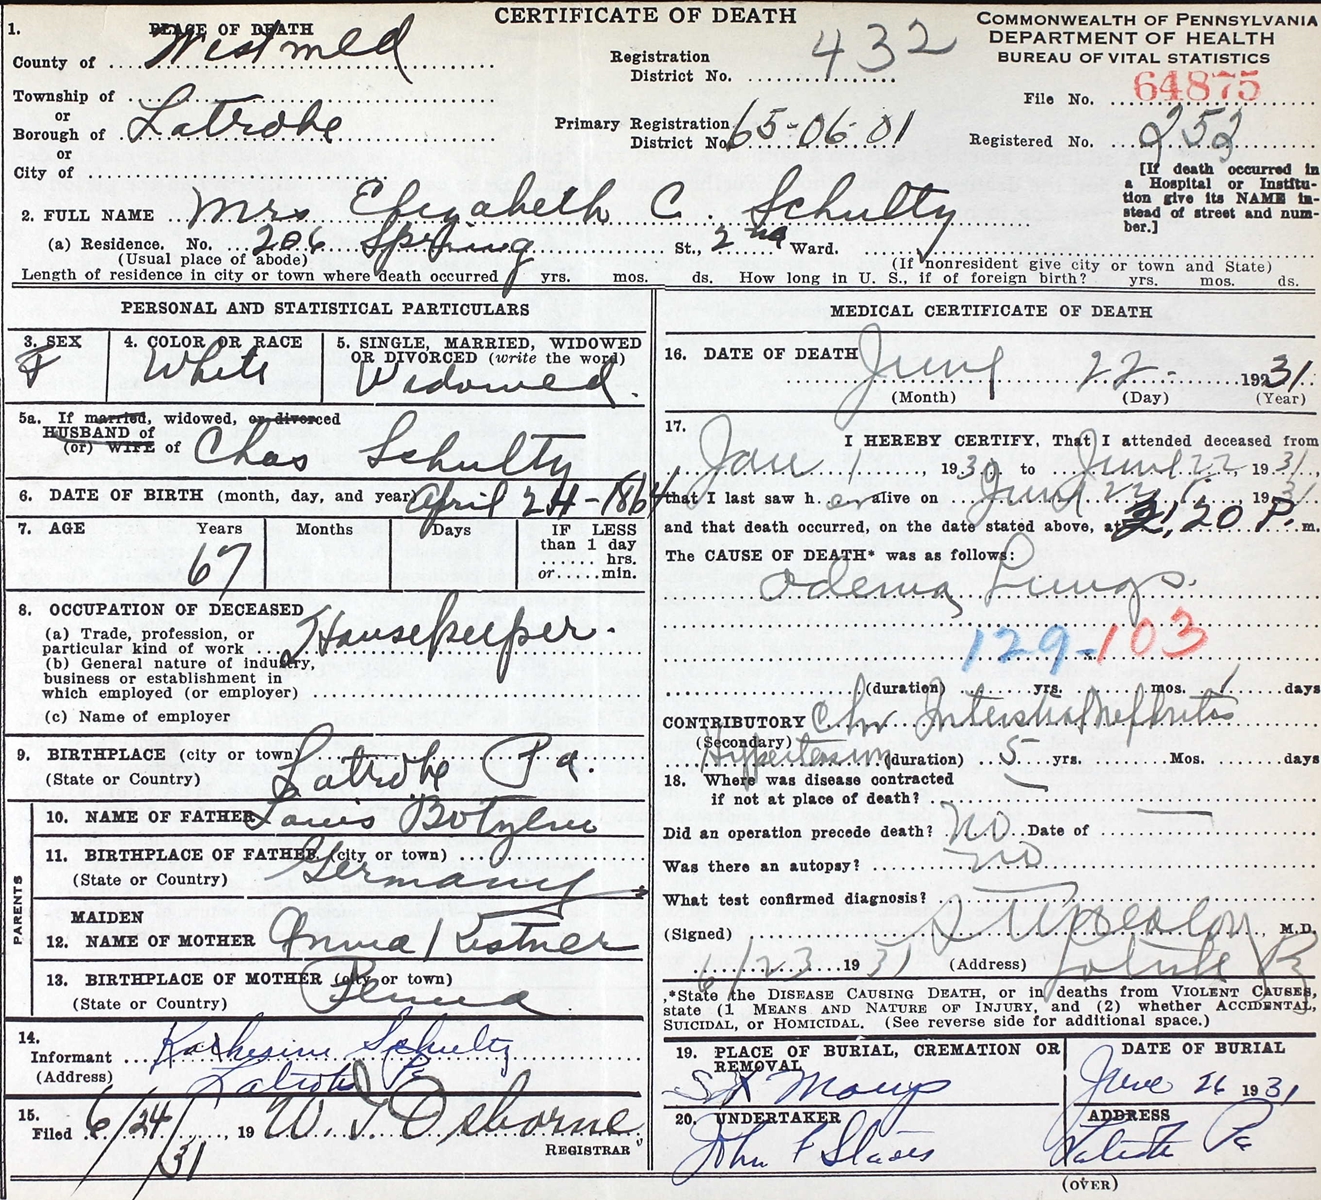 CERTIFICATE OF DEATH
COMMONWEALTH OF PENNSYLVANIA
DEPARTMENT OF HEALTH
BUREAU OF VITAL STATISTICS
1. PLACE OF DEATH
County of Westmld
Registration District No. 432
File No. 64875
Township of
or
Borough of Latrobe
Primary Registration District No. 65-06-01
Registered No. 252
or
City of
[If death occurred in a Hospital or Institution give its NAME instead of street and number.]
2. FULL NAME Mrs Elizabeth C. Schultz
(a) Residence. No. 206 Spring St., 2nd Ward.
(Usual place of abode)
(If nonresident give city or town and State)
Length of residence in city or town where death occurred yrs. mos. ds. How long in U. S., if of foreign birth? yrs. mos. ds.
PERSONAL AND STATISTICAL PARTICULARS
3. SEX
F
4. COLOR OR RACE
White
5. SINGLE, MARRIED, WIDOWED OR DIVORCED (write the word)
Widowed.
5a. If married, widowed, or divorced
HUSBAND of
(or) WIFE of Chas Schultz
6. DATE OF BIRTH (month, day, and year) April 24-1864
7. AGE Years Months Days IF LESS than 1 day
67
.... hrs.
or.... min.
8. OCCUPATION OF DECEASED
(a) Trade, profession, or particular kind of work Housekeeper.
(b) General nature of industry, business or establishment in which employed (or employer)
(c) Name of employer
9. BIRTHPLACE (city or town) Latrobe Pa.
(State or Country)
PARENTS
10. NAME OF FATHER Louis
11. BIRTHPLACE OF FATHER (city or town)
(State or Country) Germany
12. MAIDEN NAME OF MOTHER Anna Kistner
13. BIRTHPLACE OF MOTHER (city or town)
(State or Country) Penna
14. Informant Katherine Schultz
(Address) Latrobe Pa
15. Filed 6/24/31, 19 W. Osborne
REGISTRAR
MEDICAL CERTIFICATE OF DEATH
16. DATE OF DEATH June 22 - 1931
(Month) (Day) (Year)
17. I HEREBY CERTIFY, That I attended deceased from
Jan 1, 1930 to June 22 1931,
that I last saw her alive on June 22, 1931
and that death occurred, on the date stated above, at 2;20 P. m.
The CAUSE OF DEATH* was as follows:
Odema Lungs.
129-103
(duration) yrs. mos. 1 days
CONTRIBUTORY Chr Interstial Nefhritis
(Secondary)
Hypertension (duration) 5 yrs. Mos. days
18. Where was disease contracted
if not at place of death? —
Did an operation precede death? No Date of —
Was there an autopsy? no
What test confirmed diagnosis?
(Signed) M.D.
6/23 1931 (Address) Latrobe Pa
*State the DISEASE CAUSING DEATH, or in deaths from VIOLENT CAUSES, state (1 MEANS AND NATURE OF INJURY, and (2) whether ACCIDENTAL, SUICIDAL, or HOMICIDAL. (See reverse side for additional space.)
19. PLACE OF BURIAL, CREMATION OR REMOVAL
DATE OF BURIAL
St Marys
June 26 1931
20. UNDERTAKER
ADDRESS
John
Latrobe Pa
(OVER)